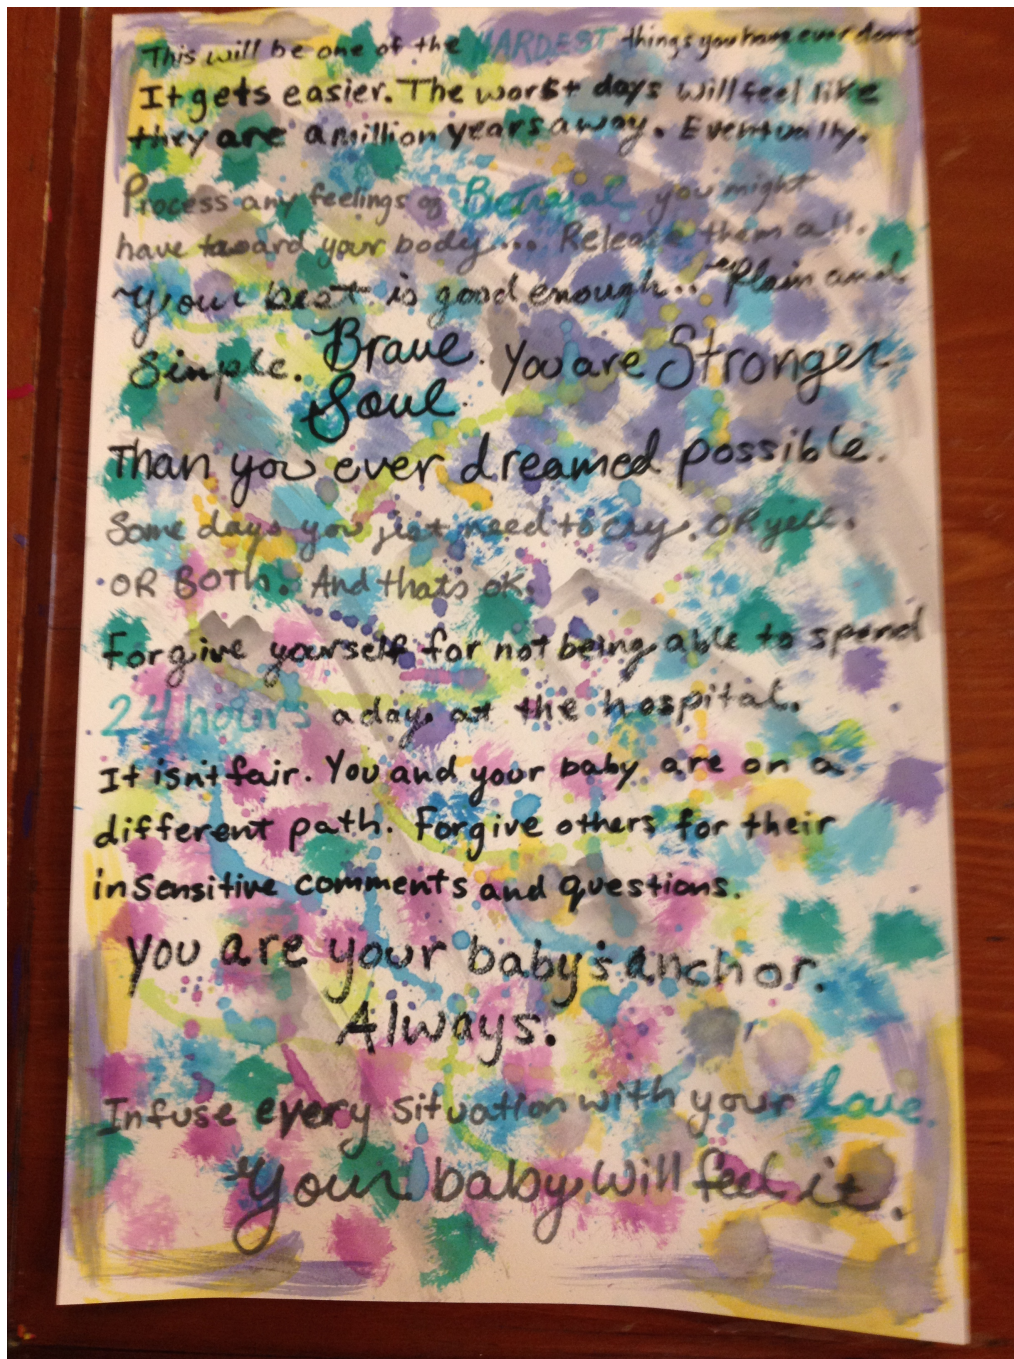 This will be one of the HARDEST things you have ever done.
It gets easier. The worst days will feel like
they are a million years away. Eventually.
Process any feelings of Betrayal you might
have toward your body... Release them all.
Your best is good enough.. Plain and
Simple. Brave Soul. You are Stronger
Than you ever dreamed possible.
Some days you just need to cry. OR yell.
OR BOTH. And thats ok.
Forgive yourself for not being able to spend
24 hours a day at the hospital.
It isn't fair. You and your baby are on a
different path. Forgive others for their
insensitive comments and questions.
you are your baby's anchor.
Always.
Infuse every situation with your love.
Your baby will feel it.